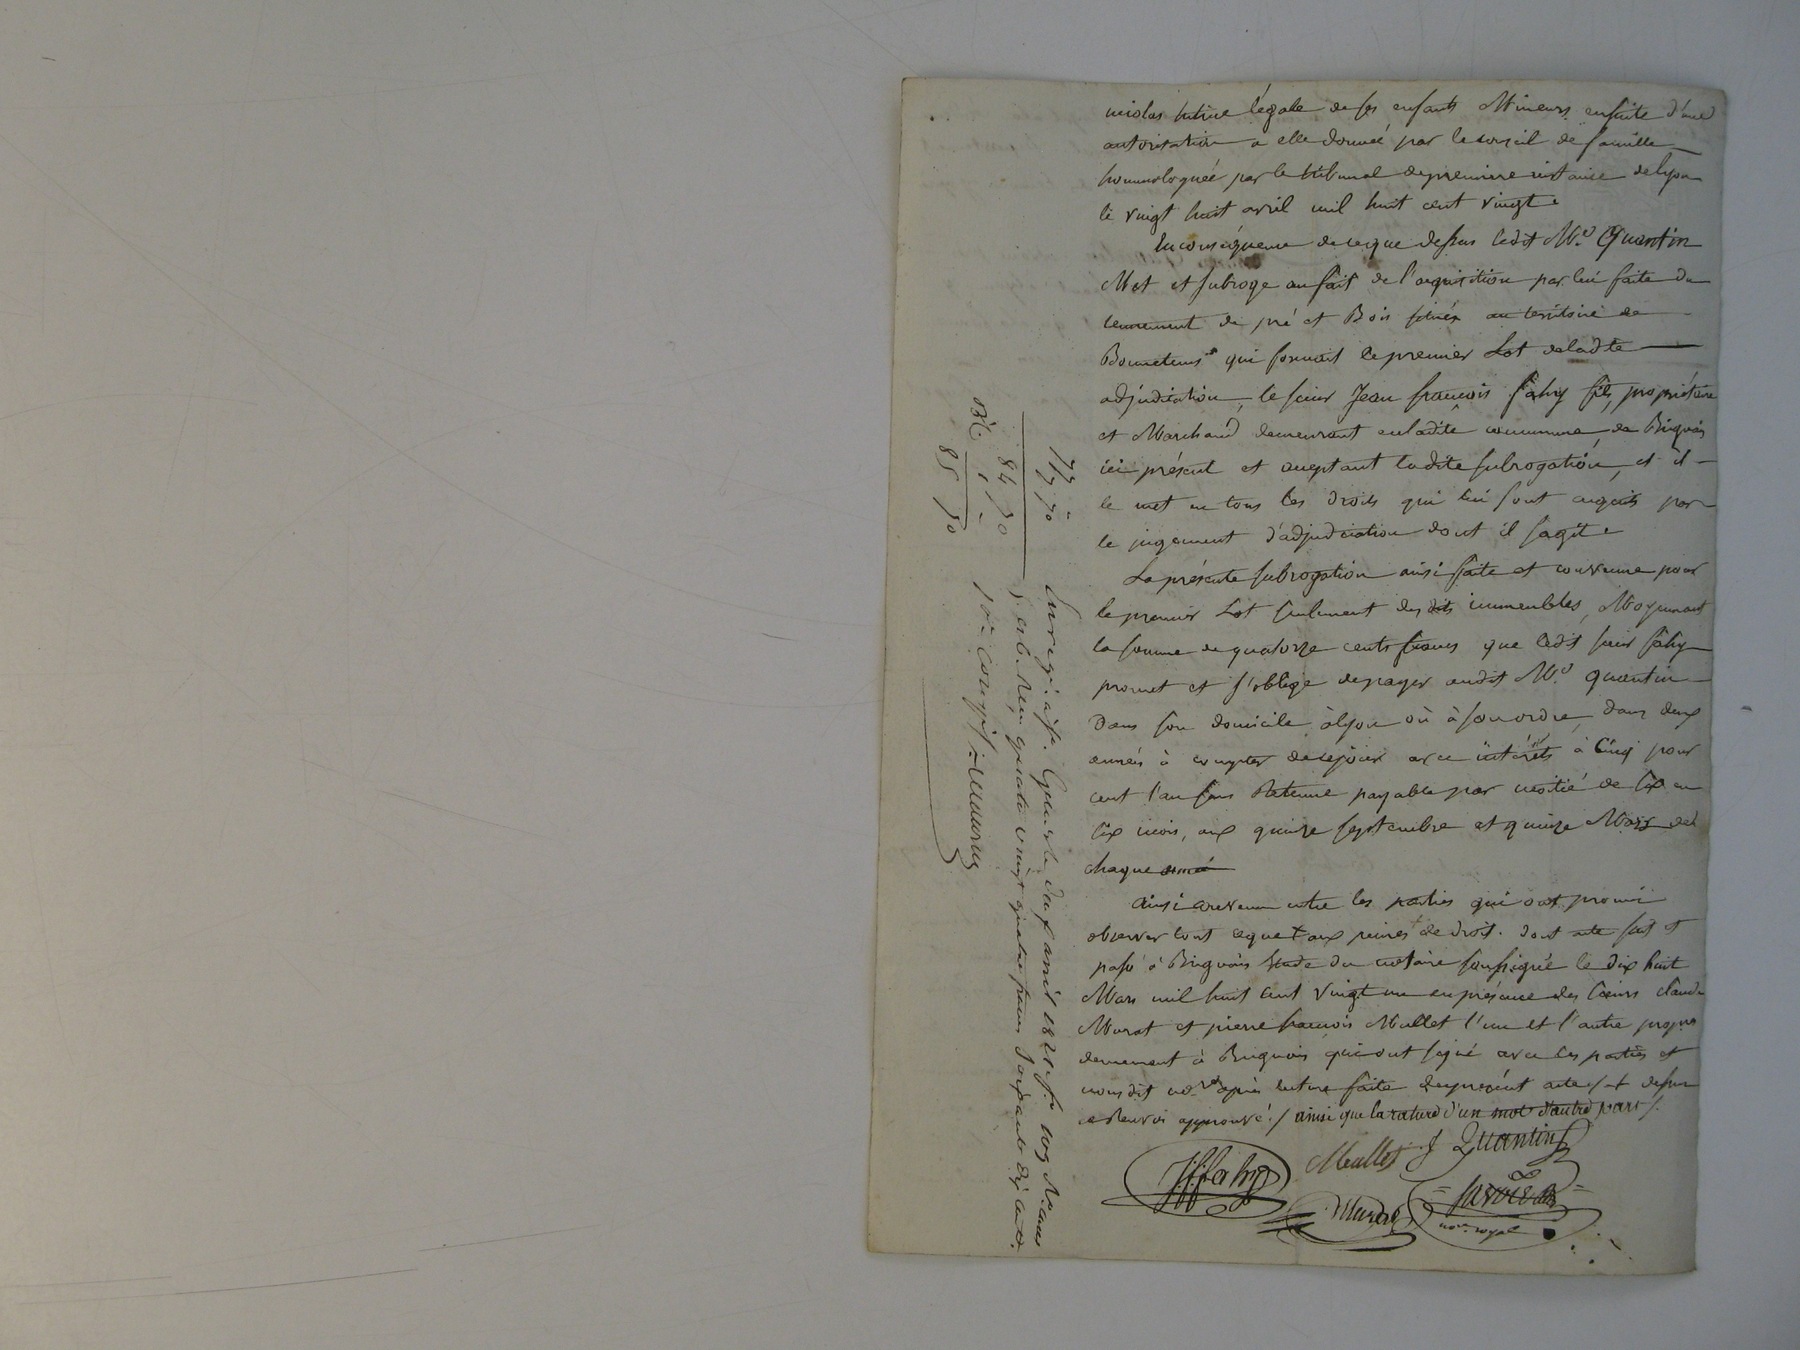 nicolas tutrice légale de ses enfants Mineurs ensuite d'une
autorisation a elle donnée par le conseil de famille
hommologuée par le tribunal de premiere instance de lyon
le vingt huit avril mil huit cent vingt.
En conséquence de ce que dessus ledit Mr. Quantin
Met et subroge au fait de l'aquisition par lui faite du
tennement de pré et Bois situés au territoire de
qui formait le premier Lot de ladte
adjudication, le sieur Jean françois fahy fils, propriétaire
et Marchand demeurant en ladite commune de Brignais
ici présent et aceptant ladite subrogation, et il
le met en tous les droits qui lui sont acquis par
le jugement d'adjudication dont il s'agit.
La présente subrogation ainsi faite et convenue pour
le premier Lot seulement des dits immeubles, Moyennant
la somme de quatorze cents francs que ledit sieur fahy
promet et s'oblige de payer audit Mr. quantin
Dans son domicile à lyon où à son ordre, dans deux
années à compter de ce jour avec intérêts à Cinq pour
cent l'an sans Retenue payable par moitié de six en
six mois, aux quinze septembre et quinze Mars de
chaque année
Ainsi convenu entre les parties qui ont promi
observer tout ce que + aux peines de droit. dont acte fait et
passé à Brignais Etude du notaire soussigné le dix huit
Mars mil huit cent vingt un en présence des sieurs claude
Murat et pierre françois Mullet l'un et l'autre propres
demeurant à Brignais qui ont signé avec les parties et
nous dit nore après lecture faite du présent acte / + dessus
Renvoi approuvé. / ainsi que la rature d'un mot d'autre part /.
Jffahy
Mullet
J Quantin
Murat
nore. royal
77 70
84 70
85 70
Enregé. à St. Genis le deux avril 1821 fo. 109 R.
5 et 6. Reçu quatre vingt quatre francs soixante dix cent.
10e. compris